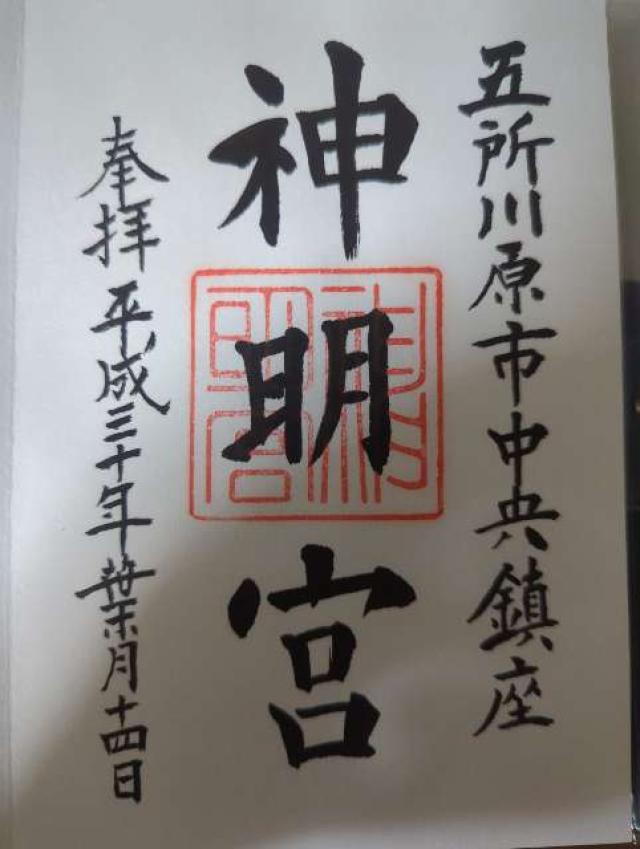 五所川原市中央鎮座
神明宮
奉拝 平成三十年葉月十四日